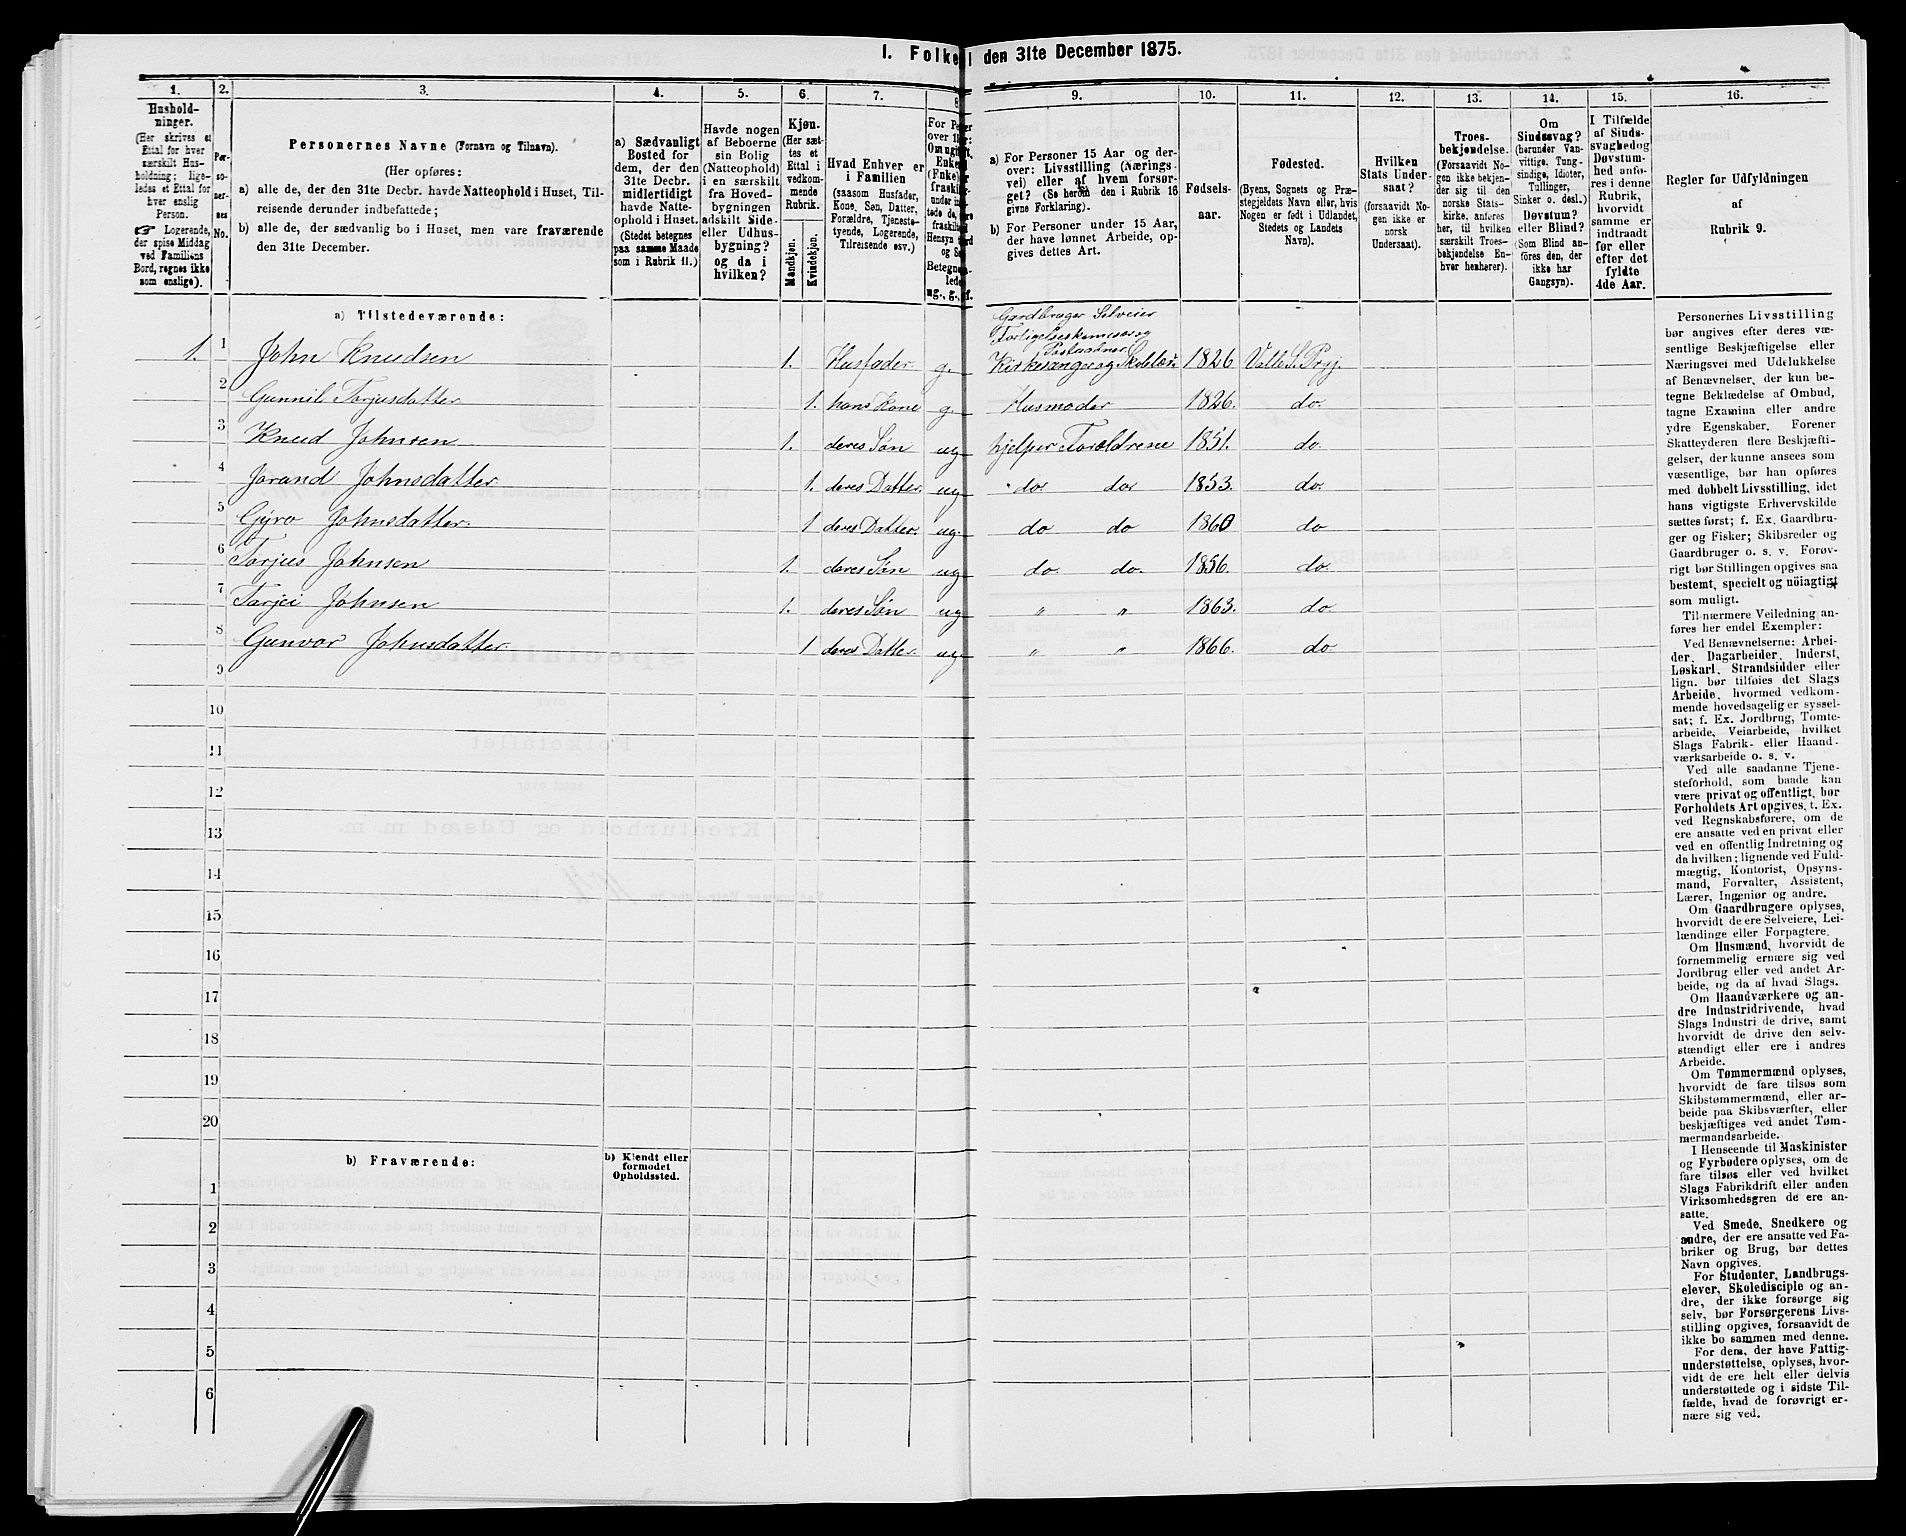 1. Folke den 31te December 1875.
1. 2. 3. 4. 5. 6. 7. 8 9. 10. 11. 12. 13. 14. 15. 16.
Hushold-
ninger.
(Her skrives et
Ettal for hver
særskilt Hus-
holdning; lige-
ledes et Ettal for
hver enslig
Person.
☞ Logerende,
der spise Middag
ved Familiens
Bord, regnes ikke
som enslige).
Per-
so-
ner-
nes
No.
Personernes Navne (Fornavn og Tilnavn).
(Her opføres:
a) alle de, der den 31te Decbr. havde Natteophold i Huset, Til-
reisende derunder indbefattede;
b) alle de, der sædvanlig bo i Huset, men vare fraværende
den 31te December.
a) Sædvanligt
Bosted for
dem, der den
31te Decbr.
midlertidigt
havde Natte-
ophold i Huset.
(Stedet betegnes
paa samme Maade
som i Rubrik 11.)
Havde nogen
af Beboerne
sin Bolig
(Natteophold)
i en særskilt
fra Hoved-
bygningen
adskilt Side-
eller Udhus-
bygning?
og da i
hvilken?
Kjøn.
(Her sæt-
tes et
Ettal i
vedkom-
mende
Rubrik.
Mandkjøn.
Kvindekjøn.
Hvad Enhver er
i Familien
(saasom Husfader,
Kone, Søn, Datter,
Forældre, Tjeneste-
tyende, Logerende,
Tilreisende osv.)
a) For Personer 15 Aar og der-
over: Livsstilling (Nærings-
vei) eller af hvem forsør-
get? (Se herom den i Rubrik 16
givne Forklaring).
b) For Personer under 15 Aar,
der have lønnet Arbeide, op-
gives dettes Art.
Fødsels-
aar.
Fødested.
(Byens, Sognets og Præ-
stegjeldets Navn eller, hvis
Nogen er født i Udlandet,
Stedets og Landets
Navn).
Hvilken
Stats Under-
saat?
(forsaavidt No-
gen ikke er
norsk
Undersaat).
Troes-
bekjendelse.
(Forsaavidt No-
gen ikke bekjen-
der sig til den
norske Stats-
kirke, anføres
her, til hvilken
særskilt Troes-
bekjendelse En-
hver henhører).
Om
Sindssvag?
(herunder Van-
vittige, Tung-
sindige, Idioter,
Tullinger,
Sinker o. desl.)
Døvstum?
eller Blind?
(Som Blind an-
føres den, der
ikke har
Gangsyn).
I Tilfælde
af Sinds-
svaghed og
Døvstum-
hed anfø-
res i denne
Rubrik,
hvorvidt
samme er
indtraadt
før eller
efter det
fyldte
4de Aar.
Regler for Udfyldningen
af
Rubrik 9.
a) Tilstedeværende:
Gardbruger Selveier
Forligelseskommissær og
Postaabner
1. 1 John Knudsen 1. Husfader g. Kirkesanger og Skolelær. 1826 Valle S. Prgj.
2 Gunnil Torjusdatter 1. hans Kone g. Husmoder 1826. do.
3 Knud Johnsen 1. deres Søn ug hjelper Forældrene 1851. do.
4 Jorand Johnsdatter 1. deres Datter. ug do do 1853. do.
5 Gyro Johnsdatter 1 deres Datter. ug. do do 1860 do
6 Torjus Johnsen 1. deres Søn ug do. do. 1856. do.
7 Tarjei Johnsen 1. deres Søn ug " " 1863. do
8 Gunvor Johnsdatter 1 deres Datter. ug " " 1866. do.
9
10
11
12
13
14
15
16
17
18
19
20
b) Fraværende: b) Kjendt eller
formodet
Opholdssted.
1
2
3
4
5
6
Personernes Livsstilling
bør angives efter deres væ-
sentlige Beskjæftigelse eller
Næringsvei med Udelukkelse
af Benævnelser, der kun be-
tegne Beklædelse af Ombud,
tagne Examina eller andre
ydre Egenskaber. Forener
Skatteyderen flere Beskjæfti-
gelser, der kunne ansees som
væsentlige, bør han opføres
med dobbelt Livsstilling, idet
hans vigtigste Erhvervskilde
sættes først; f. Ex. Gaardbru-
ger og Fisker; Skibsreder og
Gaardbruger o. s. v. Forøv-
rigt bør Stillingen opgives saa
bestemt, specielt og nøiagtigt
som muligt.
Til nærmere Veiledning an-
føres her endel Exempler:
Ved Benævnelserne: Arbei-
der, Dagarbeider, Inderst,
Løskarl, Strandsidder eller
lign. bør tilføies det Slags
Arbeide, hvormed vedkom-
mende hovedsagelig er syssel-
sat; f. Ex. Jordbrug, Tomte-
arbeide, Veiarbeide, hvilket
Slags Fabrik- eller Haand-
værksarbeide o. s. v.
Ved alle saadanne Tjene-
steforhold, som baade kan
være privat og offentligt, bør
Forholdets Art opgives, t. Ex.
ved Regnskabsførere, om de
ere ansatte ved en privat eller
ved en offentlig Indretning og
da hvilken; lignende ved Fuld-
mægtig, Kontorist, Opsyns-
mand, Forvalter, Assistent,
Lærer, Ingeniør og andre.
Om Gaardbrugere oplyses,
hvorvidt de ere Selveiere, Lei-
lændinge eller Forpagtere.
Om Husmænd, hvorvidt de
fornemmelig ernære sig ved
Jordbrug eller ved andet Ar-
beide, og da af hvad Slags.
Om Haandværkere og an-
dre Industridrivende, hvad
Slags Industri de drive, samt
hvorvidt de drive den selv-
stændigt eller ere i andres
Arbeide.
Om Tømmermænd oplyses,
hvorvidt de fare tilsøs som
Skibstømmermænd, eller ar-
beide paa Skibsværfter, eller
beskjæftiges ved andet Tøm-
mermandsarbeide.
I Henseende til Maskinister
og Fyrbødere oplyses, om de
fare tilsøs eller ved hvilket
Slags Fabrikdrift eller anden
Virksomhedsgren de ere an-
satte.
Ved Smede, Snedkere og
andre, der ere ansatte ved Fa-
briker og Brug, bør dettes
Navn opgives.
For Studenter, Landbrugs-
elever, Skoledisciple og an-
dre, der ikke forsørge sig
selv, bør Forsørgerens Livs-
stilling opgives, forsaavidt de
ikke bo sammen med denne.
For dem, der have Fattig-
understøttelse, oplyses, hvor-
vidt de ere helt eller delvis
understøttede og i sidste Til-
fælde, hvad de forøvrigt er-
nære sig ved.